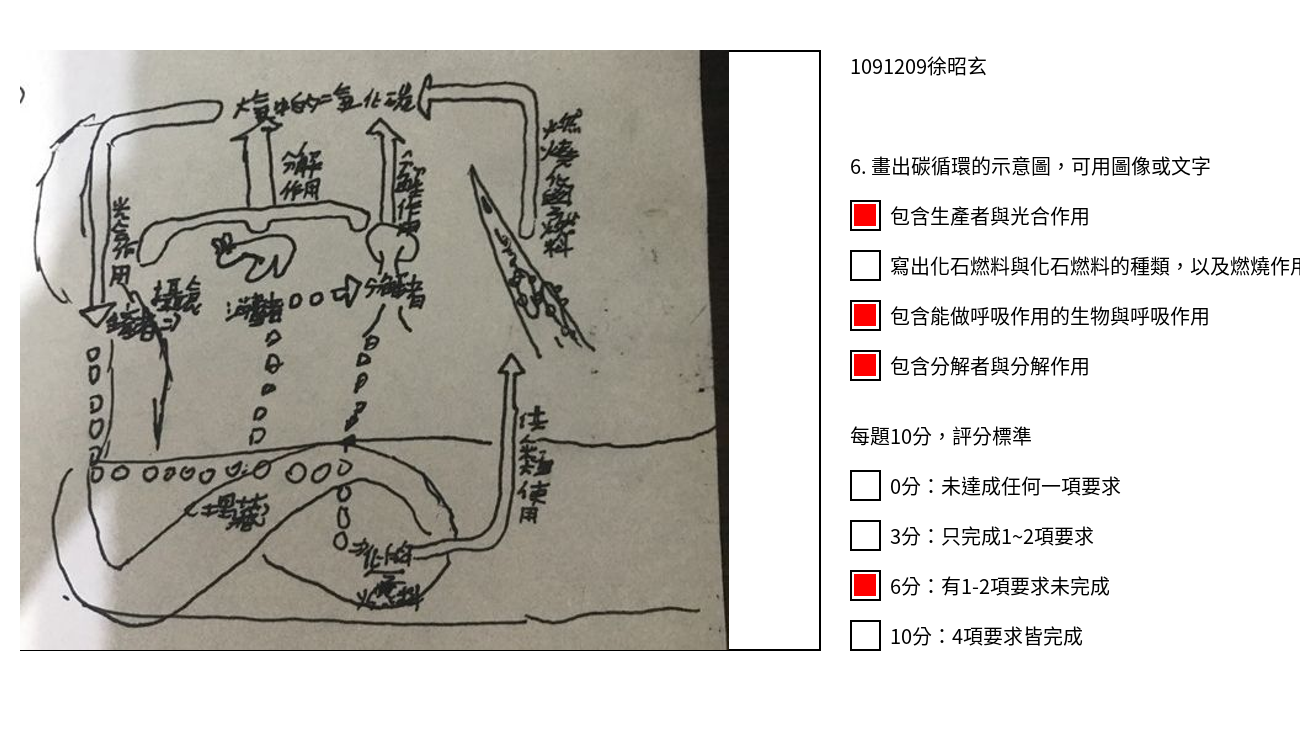 大氣中的二氧化碳
燃燒化石燃料
分解作用
分解作用
光合作用
攝食
消費者
分解者
生產者
供人類使用
(埋藏)
化石
燃料
1091209徐昭玄
6. 畫出碳循環的示意圖，可用圖像或文字
包含生產者與光合作用
寫出化石燃料與化石燃料的種類，以及燃燒作用
包含能做呼吸作用的生物與呼吸作用
包含分解者與分解作用
每題10分，評分標準
0分：未達成任何一項要求
3分：只完成1~2項要求
6分：有1-2項要求未完成
10分：4項要求皆完成